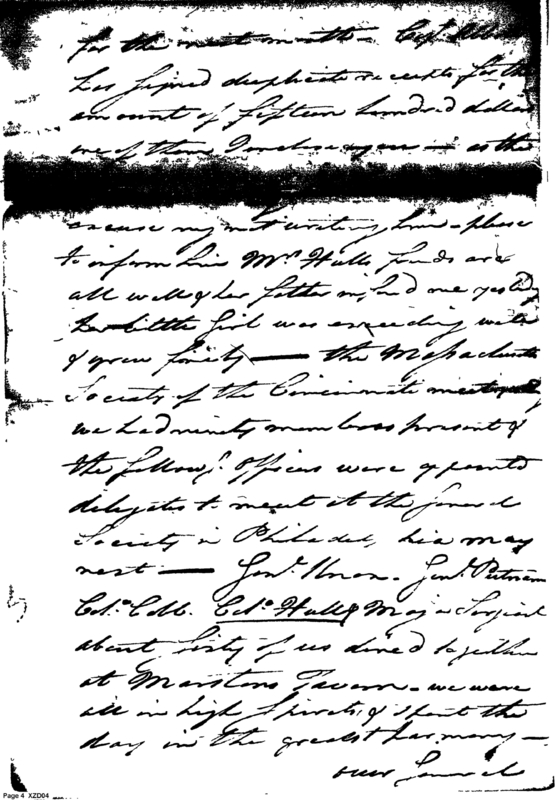 for the next month - Capt
has signed duplicate receipts for the
amount of fifteen hundred dollars
one of them I enclose you — as the
excuse my not writing him - please
to inform him Mrs Hulls friends are
all well & her father in told me yesty
her little Girl was exceeding well
& grew finely — the Massachusetts
Society of the Cincinnati
we had ninety members present &
the follows. Officers were appointed
delegates to meet at the General
Society in Philadelphia may
next — Genl. Knox - Genl. Putnam
Colo. Cobb. Colo Hull & Major Sergeant
about sixty of us dined together
at Marstons Tavern - we were
all in high Spirits, & spent the
day in the greatest harmony —
our General
Page 4 XZD04